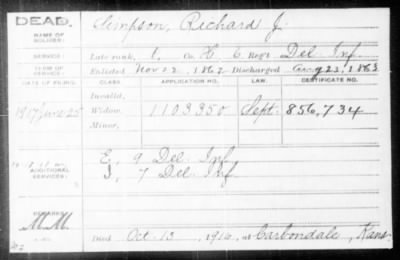 DEAD.
NAME OF SOLDIER: Simpson, Richard J.
SERVICE: Late rank, Co. H, 6 Reg't Del Inf.
TERM OF SERVICE: Enlisted Nov 22, 1862 Discharged Aug 23, 1863
DATE OF FILING. CLASS. APPLICATION NO. LAW. CERTIFICATE NO.
Invalid,
1917 June 25 Widow, 1103350 Sept. 856,734
Minor,
ADDITIONAL SERVICES: E, 9 Del Inf
I, 7 Del Inf
REMARKS:
M.M.
Died Oct 13, 1916, at Carbondale, Kans